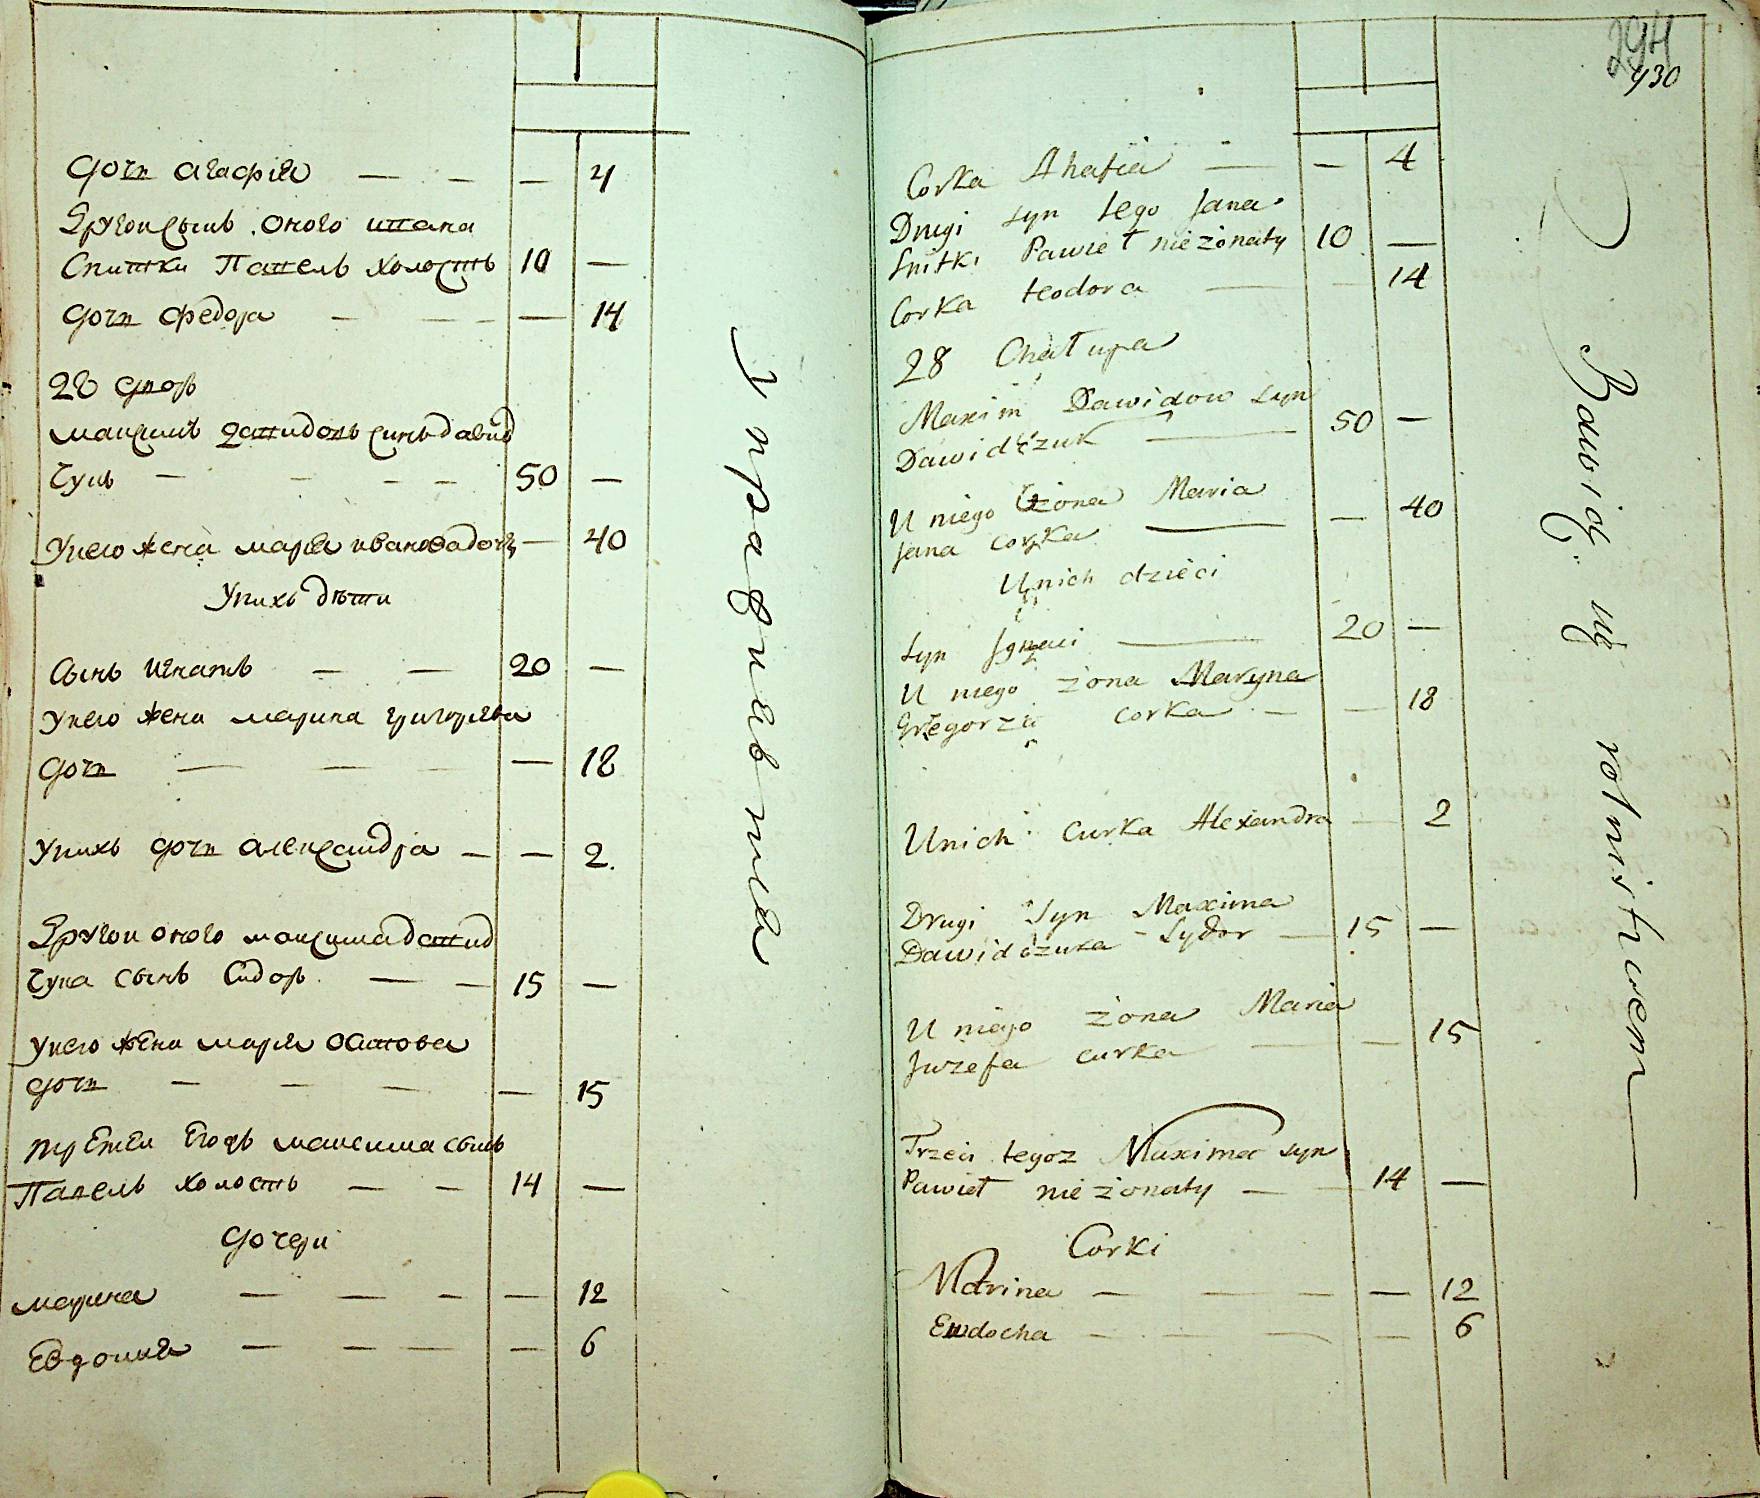 дочь агафiя — — — 4
Другои сынъ оного ивана
Снитки Павелъ холостъ 10 —
дочь федора — — — — 14
28 дворъ
максимъ давидовъ сынъ давид
чукъ — — — — 50 —
унего жена марiя иванова дочь — 40
Унихъ дѣти
сынъ игнатъ — — 20 —
унего жена марина григорьева
дочь — — — — 18
унихъ дочь александра — — 2.
Другои оного максима давид
чука сынъ Сидоръ — — 15 —
унего жена марiя осипова
дочь — — — — 15
третеи того жъ максима сынъ
Павелъ холостъ — — 14 —
дочери
марина — — — — 12
Евдокия — — — — 6
Упражняется
294
430
Corka Ahafia — — 4
Drugi syn tego Jana
Snitki Pawieł nie żonaty 10 —
Corka teodora — — 14
28 Chałupa
Maxim Dawidow syn
Dawidczuk — 50 —
U niego żona Maria
Jana corka — — 40
Unich dzieci
syn Jgnaci — 20 —
U niego żona Maryna
Gregorzia corka — — 18
Unich curka Alexandra — 2
Drugi syn Maxima
Dawidczuka Sydor — 15 —
U niego żona Maria
Juzefa curka — — 15
Trzeci tegoz Maxima syn
Pawieł nie żonaty — — 14 —
Corki
Marina — — — — 12
Ewdocha — — — — 6
Bawią się rolnistwem —